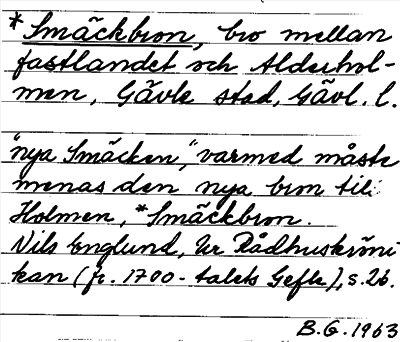 *Smäckbron, bro mellan
fastlandet och Alderhol-
men, Gävle stad, Gävl. l.
"nya Smäcken," varmed måste
menas den nya bron till
Holmen, *Smäckbron.
Nils Englund, Ur Rådhuskröni-
kan (fr. 1700-talets Gefle), s. 26.
B.G. 1963